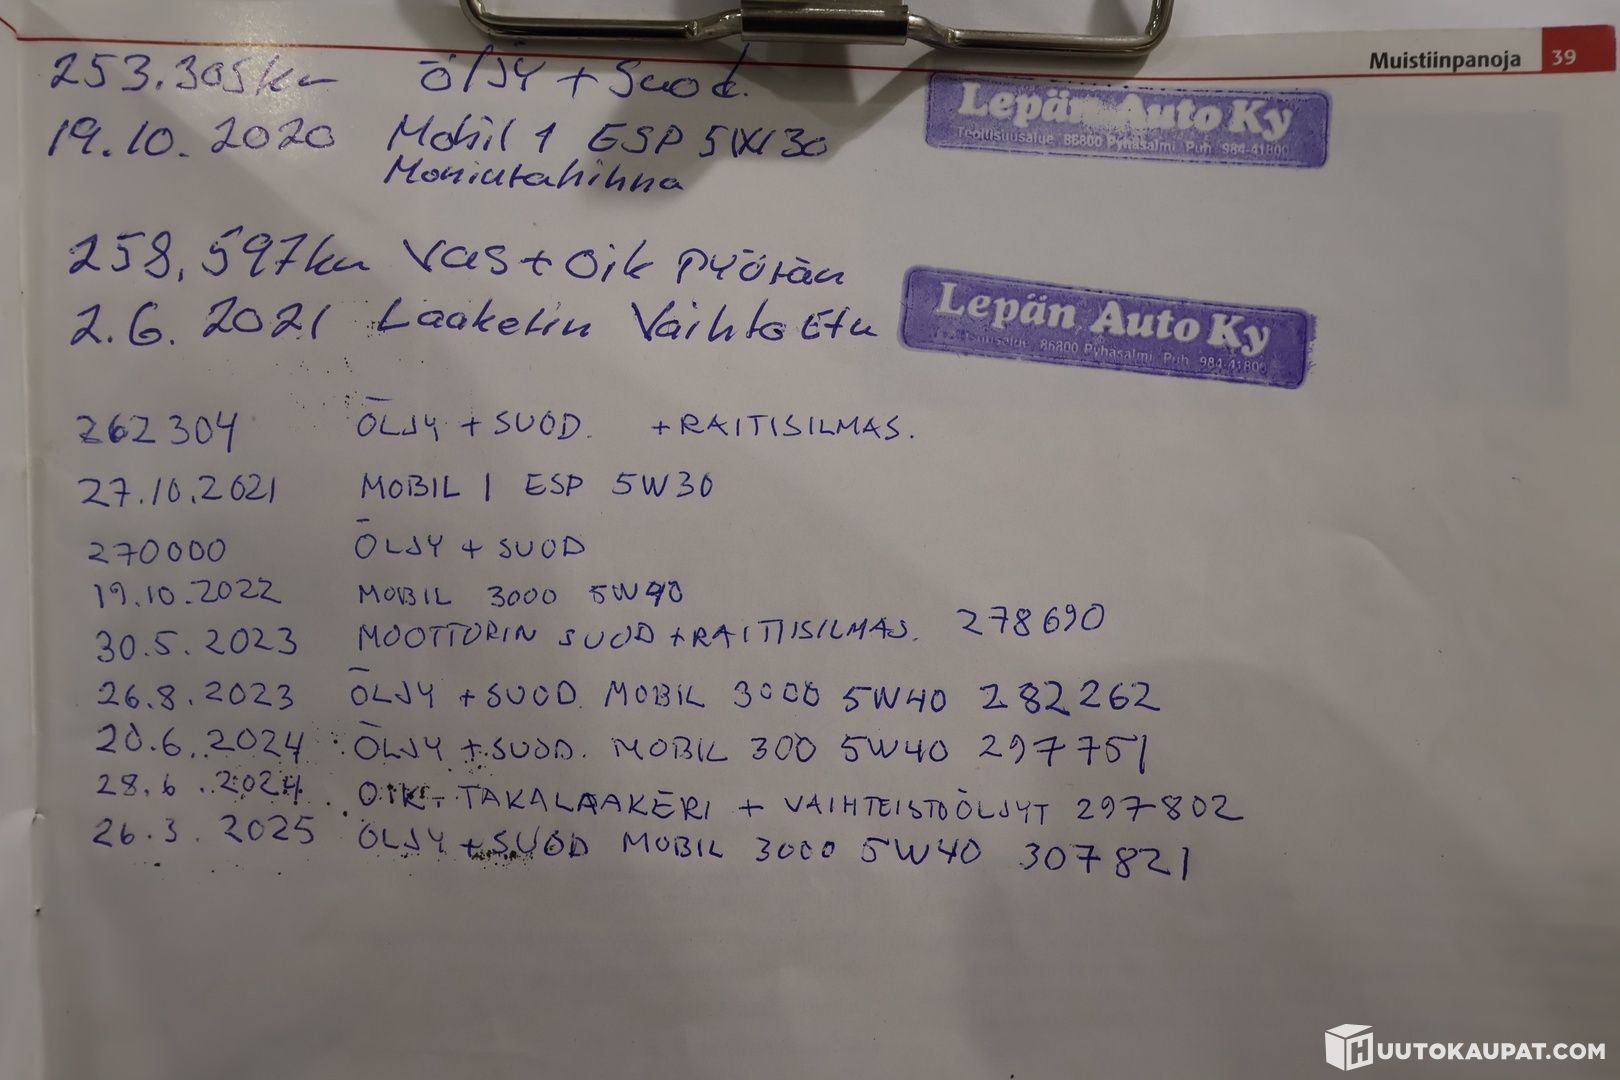 Muistiinpanoja 39
253.305km Öljy + Suod.
19.10.2020 Mobil 1 ESP 5W30
Moniurahihna
Lepän Auto Ky
Teollisuusalue 86800 Pyhäsalmi Puh. 984-41800
258.597km Vas + Oik Pyörän
2.6.2021 Laakerin Vaihto Etu
Lepän Auto Ky
Teollisuusalue 86800 Pyhäsalmi Puh. 984-41800
262304 ÖLJY + SUOD. + RAITISILMAS.
27.10.2021 MOBIL 1 ESP 5W30
270000 ÖLJY + SUOD
19.10.2022 MOBIL 3000 5W40
30.5.2023 MOOTTORIN SUOD + RAITTISILMAS. 278690
26.8.2023 ÖLJY + SUOD. MOBIL 3000 5W40 282262
20.6.2024 ÖLJY + SUOD. MOBIL 300 5W40 297751
28.6.2024 OIK. TAKALAAKERI + VAIHTEISTOÖLJYT 297802
26.3.2025 ÖLJY + SUOD MOBIL 3000 5W40 307821
HUUTOKAUPAT.COM